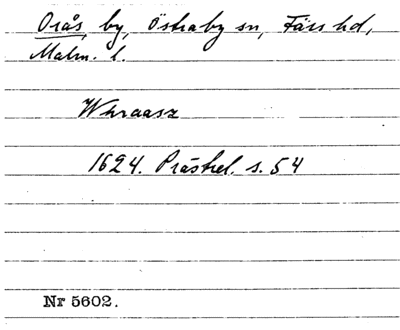 Orås, by, Östraby sn, Färs hd,
Malm. l.
Whraasz
1624. Prästrel. s. 54
Nr 5602.